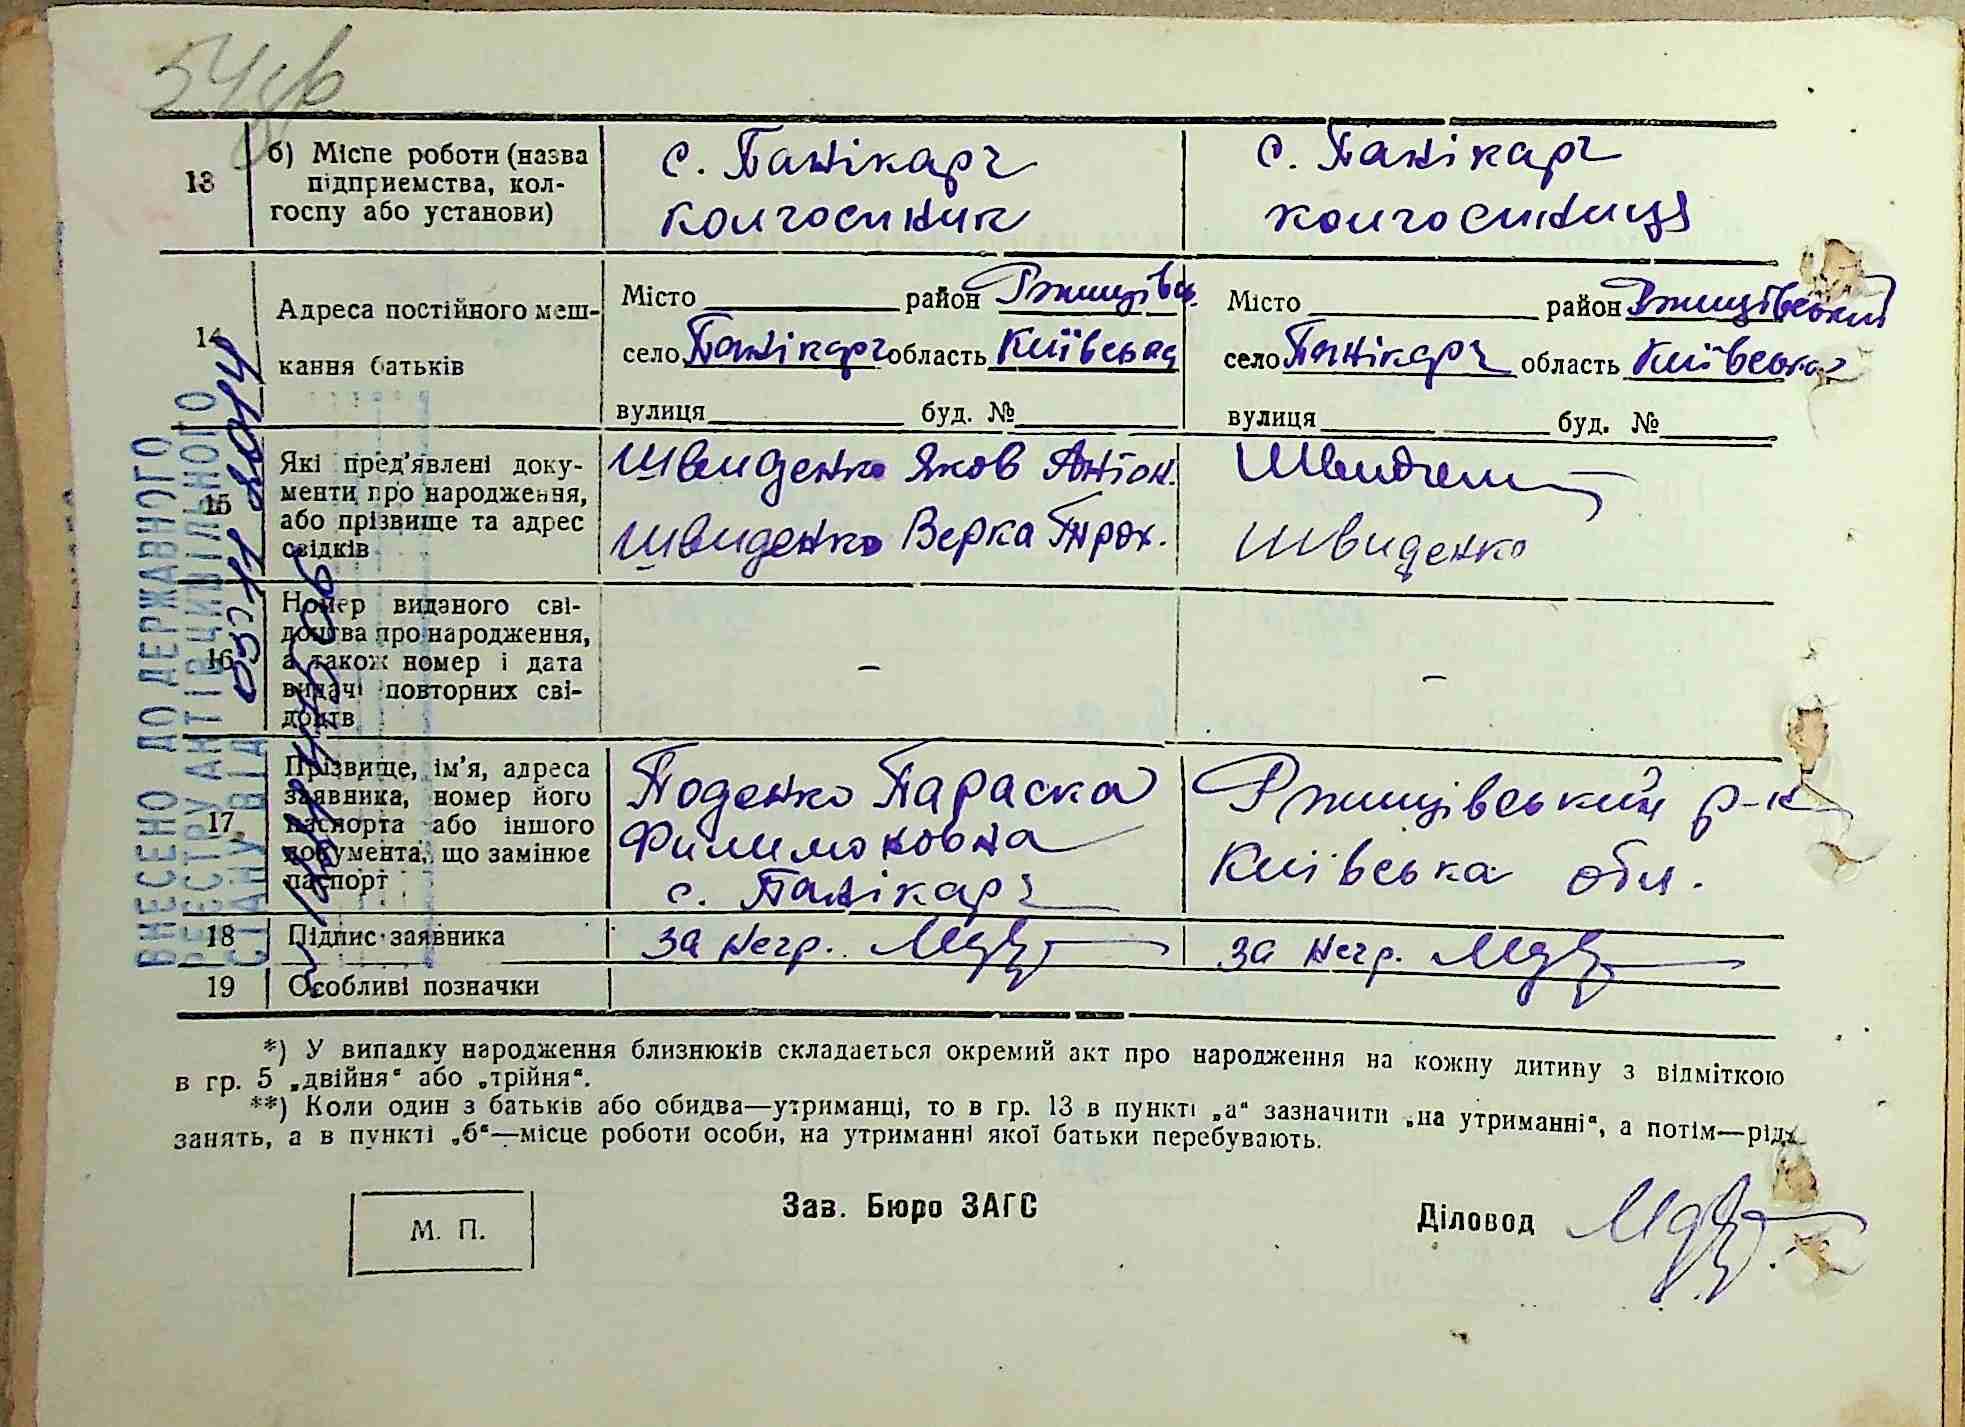 54
13
б) Місце роботи (назва
підприємства, кол-
госпу або установи)
с. Панікарч
колгоспник
с. Панікарч
колгоспниця
14
Адреса постійного меш-
кання батьків
Місто район Ржищівсь.
село Панікарч область Київська
вулиця буд. №
Місто район Ржищівський
село Панікарч область Київська
вулиця буд. №
15
Які пред'явлені доку-
менти про народження,
або прізвище та адрес
свідків
Швиденко Яков Антон.
Швиденко Верка Прох.
Швиденко
16
Номер виданого сві-
доцтва про народження,
а також номер і дата
видачі повторних сві-
доцтв
–
–
17
Прізвище, ім'я, адреса
заявника, номер його
паспорта або іншого
документа, що замінює
паспорт
Поденко Параска
Филимоновна
с. Панікарч
Ржищівський р-н
Київська обл.
18
Підпис заявника
за негр.
за негр.
19
Особливі позначки
ВНЕСЕНО ДО ДЕРЖАВНОГО
РЕЄСТРУ АКТІВ ЦИВІЛЬНОГО
СТАНУ ВІД
*) У випадку народження близнюків складається окремий акт про народження на кожну дитину з відміткою
в гр. 5 „двійня" або „трійня".
**) Коли один з батьків або обидва—утриманці, то в гр. 13 в пункті „а" зазначити „на утриманні", а потім—рід
занять, а в пункті „б"—місце роботи особи, на утриманні якої батьки перебувають.
М. П.
Зав. Бюро ЗАГС
Діловод